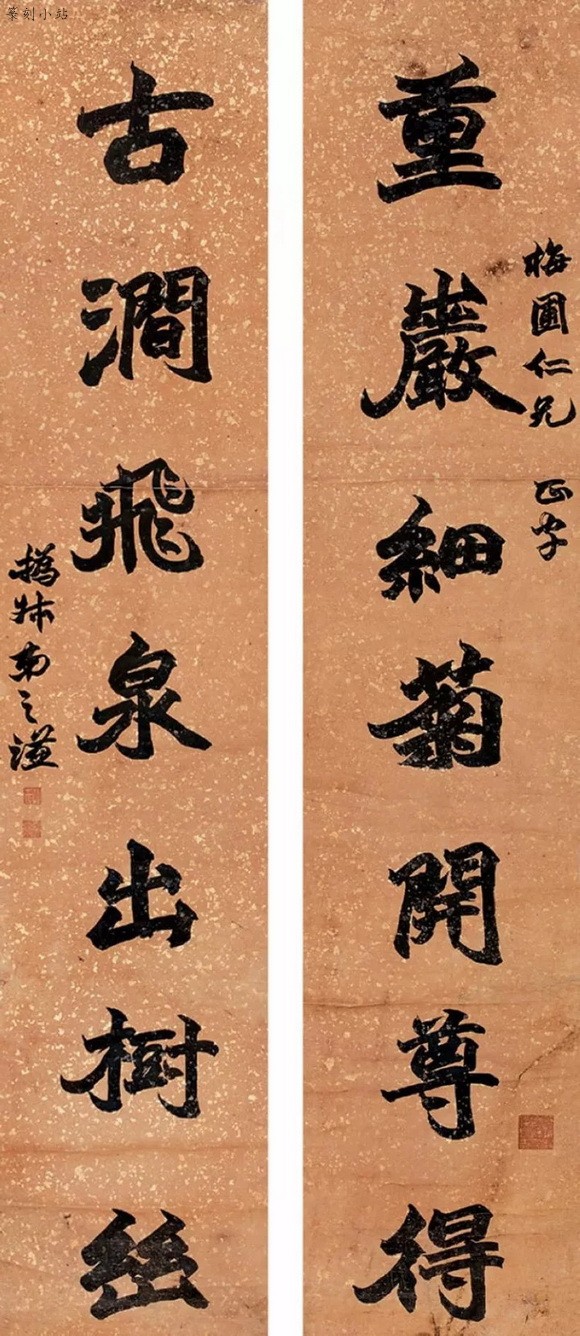 篆刻小站
重巖細菊開尊得
梅圃仁兄 正字
古澗飛泉出樹丝
撝叔弟之謙